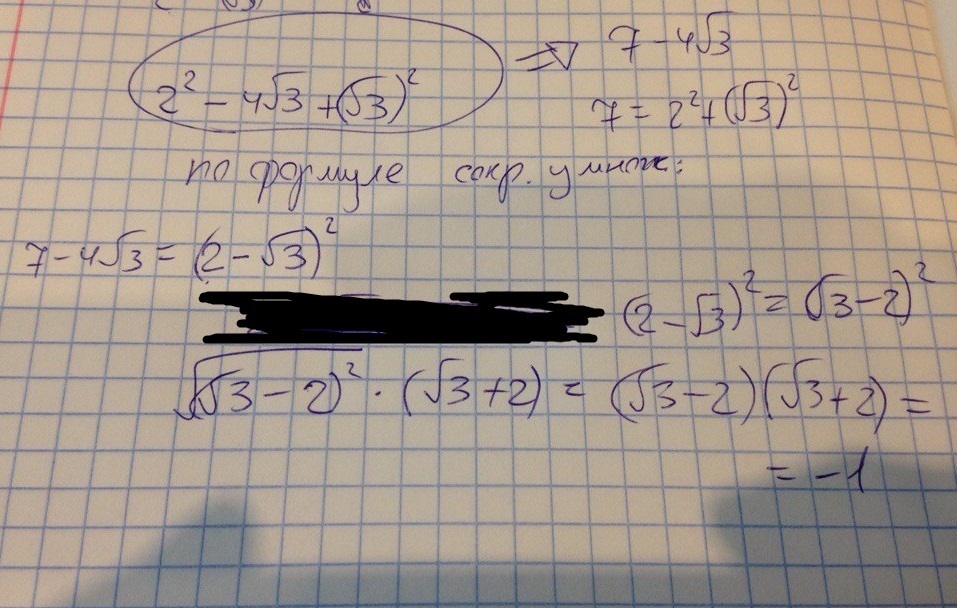 2² - 4√3 + (√3)² ⇒ 7 - 4√3
7 = 2² + (√3)²
по формуле сокр. умнож:
7 - 4√3 = (2 - √3)²
(2 - √3)² = (√3 - 2)²
√(√3 - 2)² · (√3 + 2) = (√3 - 2)(√3 + 2) =
= -1